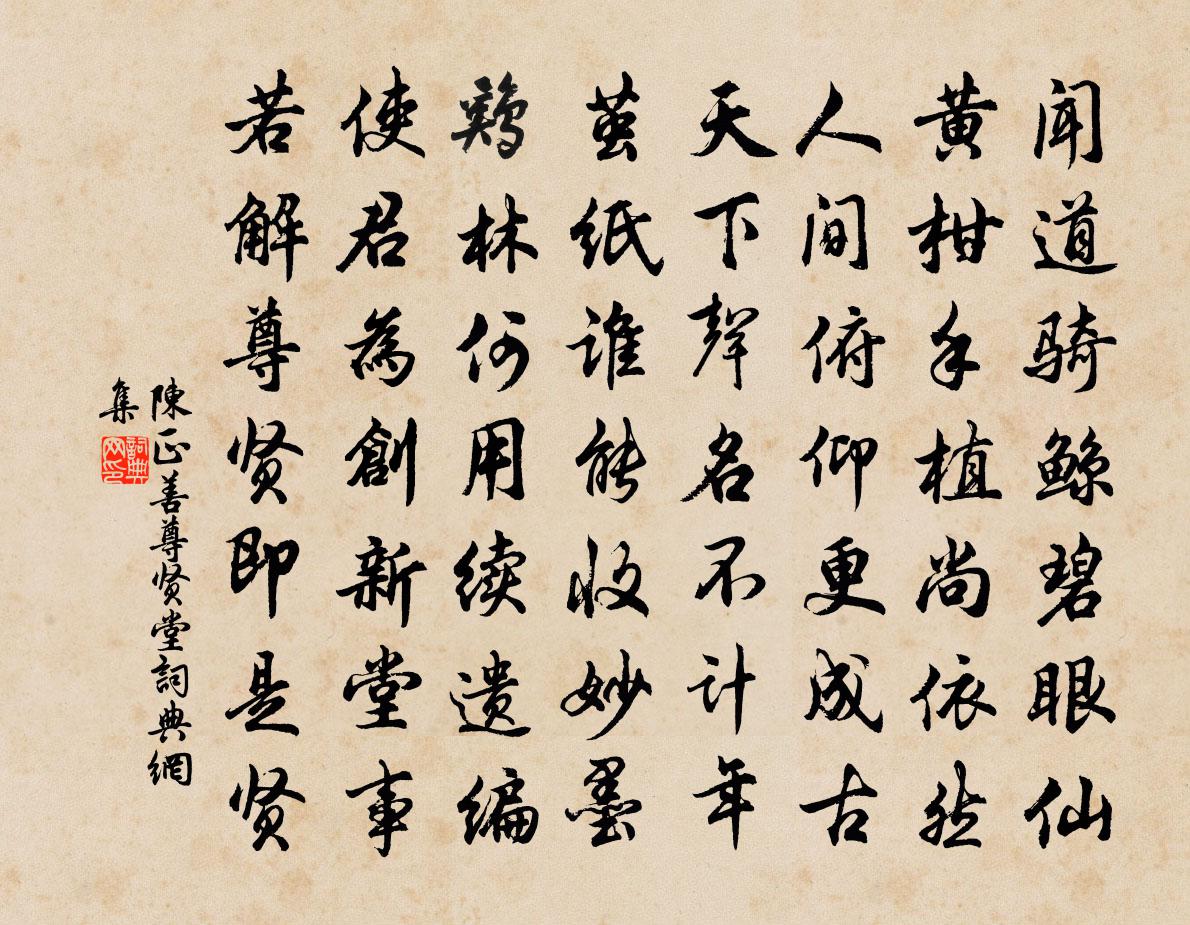 闻道骑鲸碧眼仙
黄柑手植尚依然
人间俯仰更成古
天下聲名不计年
茧纸谁能收妙墨
鷄林何用续遗编
使君為創新堂事
若解尊贤即是贤
陳正善尊贤堂詞典網
集
詞典
网印